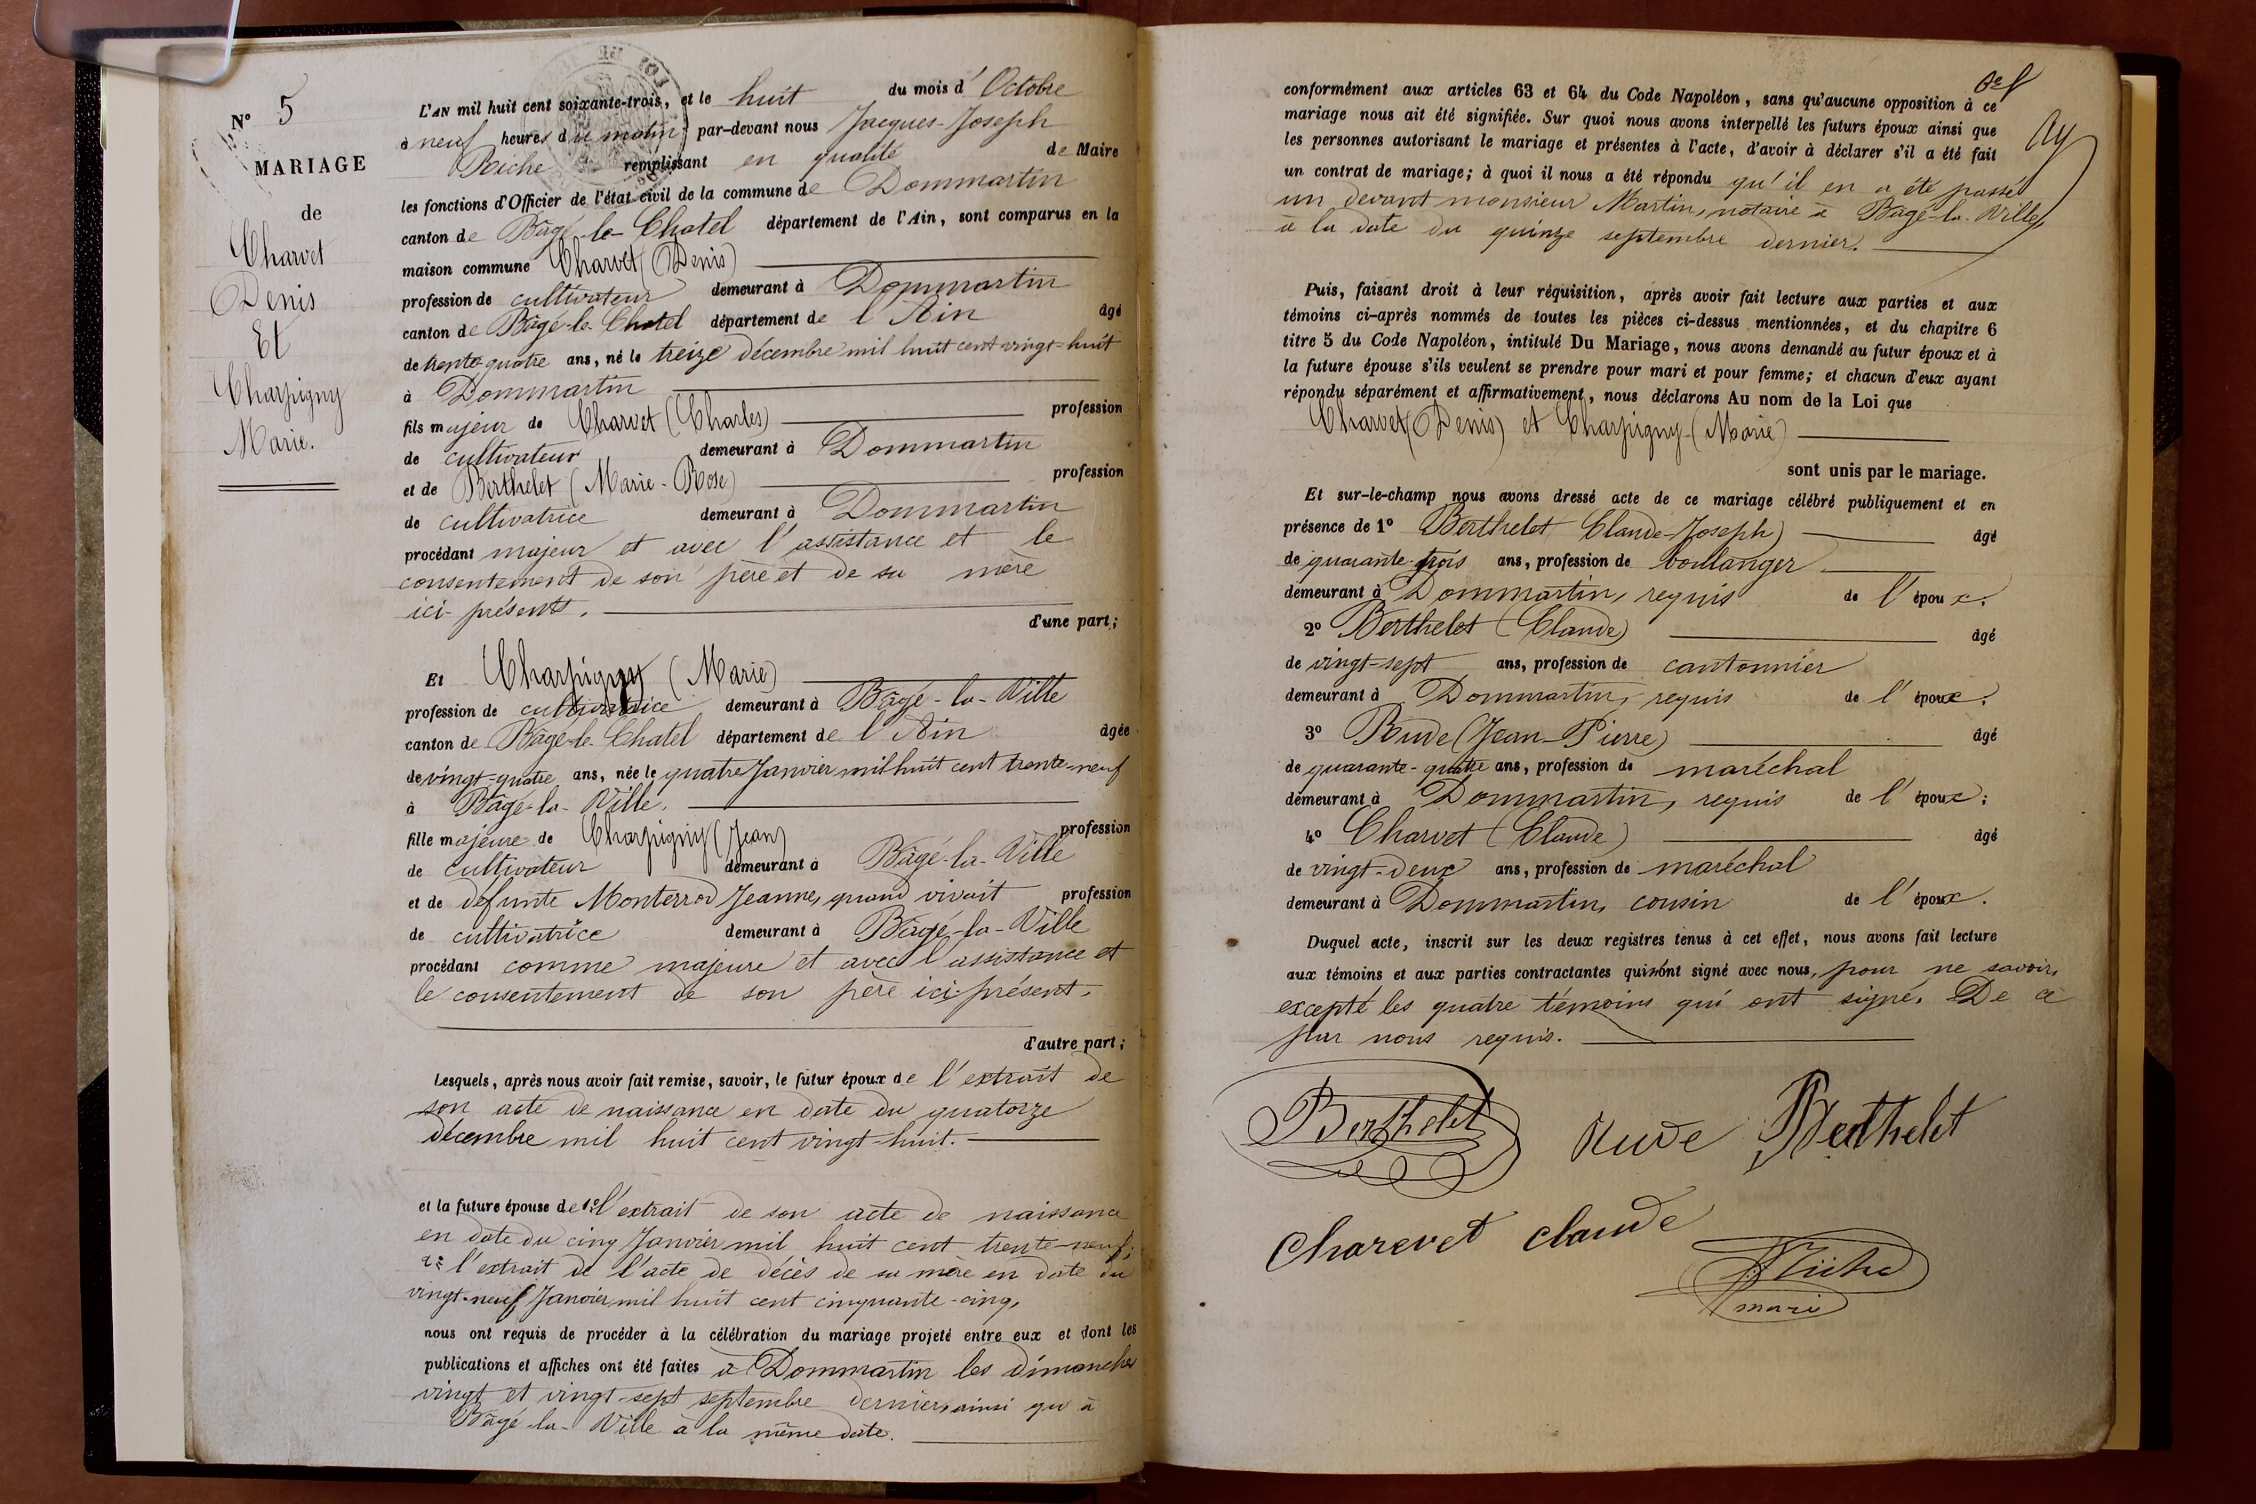 N° 5
MARIAGE
de
Charvet
Denis
Et
Charpigny
Marie.
L'AN mil huit cent soixante-trois, et le huit du mois d'Octobre
à neuf heures du matin par-devant nous Jacques-Joseph
Riche remplissant en qualité de Maire
les fonctions d'Officier de l'état civil de la commune de Dommartin
canton de Bâgé-le-Chatel département de l'Ain, sont comparus en la
maison commune Charvet (Denis)
profession de cultivateur demeurant à Dommartin
canton de Bâgé-le-Chatel département de l'Ain âgé
de trente-quatre ans, né le treize décembre mil huit cent vingt-huit
à Dommartin
fils majeur de Charvet (Charles) profession
de cultivateur demeurant à Dommartin
et de Berthelet (Marie-Rose) profession
de cultivatrice demeurant à Dommartin
procédant majeur et avec l'assistance et le
consentement de son père et de sa mère
ici présents.
d'une part;
Et Charpigny (Marie)
profession de cultivatrice demeurant à Bâgé-la-Ville
canton de Bâgé-le-Chatel département de l'Ain âgée
de vingt-quatre ans, née le quatre Janvier mil huit cent trente-neuf
à Bâgé-la-Ville.
fille majeure de Charpigny (Jean) profession
de cultivateur demeurant à Bâgé-la-Ville
et de défunte Monterrod Jeanne, quand vivait profession
de cultivatrice demeurant à Bâgé-la-Ville
procédant comme majeure et avec l'assistance et
le consentement de son père ici présent.
d'autre part;
Lesquels, après nous avoir fait remise, savoir, le futur époux de l'extrait de
son acte de naissance en date du quatorze
décembre mil huit cent vingt-huit.
et la future épouse de 1° l'extrait de son acte de naissance
en date du cinq Janvier mil huit cent trente-neuf;
2° l'extrait de l'acte de décès de sa mère en date du
vingt-neuf Janvier mil huit cent cinquante-cinq,
nous ont requis de procéder à la célébration du mariage projeté entre eux et dont les
publications et affiches ont été faites à Dommartin les dimanches
vingt et vingt-sept septembre dernier, ainsi qu'à
Bâgé-la-Ville à la même date.
conformément aux articles 63 et 64 du Code Napoléon, sans qu'aucune opposition à ce
mariage nous ait été signifiée. Sur quoi nous avons interpellé les futurs époux ainsi que
les personnes autorisant le mariage et présentes à l'acte, d'avoir à déclarer s'il a été fait
un contrat de mariage; à quoi il nous a été répondu qu'il en a été passé
un devant monsieur Martin, notaire à Bâgé-la-Ville,
à la date du quinze septembre dernier.
Puis, faisant droit à leur réquisition, après avoir fait lecture aux parties et aux
témoins ci-après nommés de toutes les pièces ci-dessus mentionnées, et du chapitre 6
titre 5 du Code Napoléon, intitulé Du Mariage, nous avons demandé au futur époux et à
la future épouse s'ils veulent se prendre pour mari et pour femme; et chacun d'eux ayant
répondu séparément et affirmativement, nous déclarons Au nom de la Loi que
Charvet (Denis) et Charpigny (Marie)
sont unis par le mariage.
Et sur-le-champ nous avons dressé acte de ce mariage célébré publiquement et en
présence de 1° Berthelet (Claude-Joseph) âgé
de quarante-trois ans, profession de boulanger
demeurant à Dommartin, requis de l'époux.
2° Berthelet (Claude) âgé
de vingt-sept ans, profession de cantonnier
demeurant à Dommartin, requis de l'époux.
3° Rude (Jean-Pierre) âgé
de quarante-quatre ans, profession de maréchal
demeurant à Dommartin, requis de l'époux;
4° Charvet (Claude) âgé
de vingt-deux ans, profession de maréchal
demeurant à Dommartin, cousin de l'époux.
Duquel acte, inscrit sur les deux registres tenus à cet effet, nous avons fait lecture
aux témoins et aux parties contractantes qui n'ont signé avec nous, pour ne savoir,
excepté les quatre témoins qui ont signé. De ce
par nous requis.
Berthelet Rude Berthelet
Charevet claude
Riche